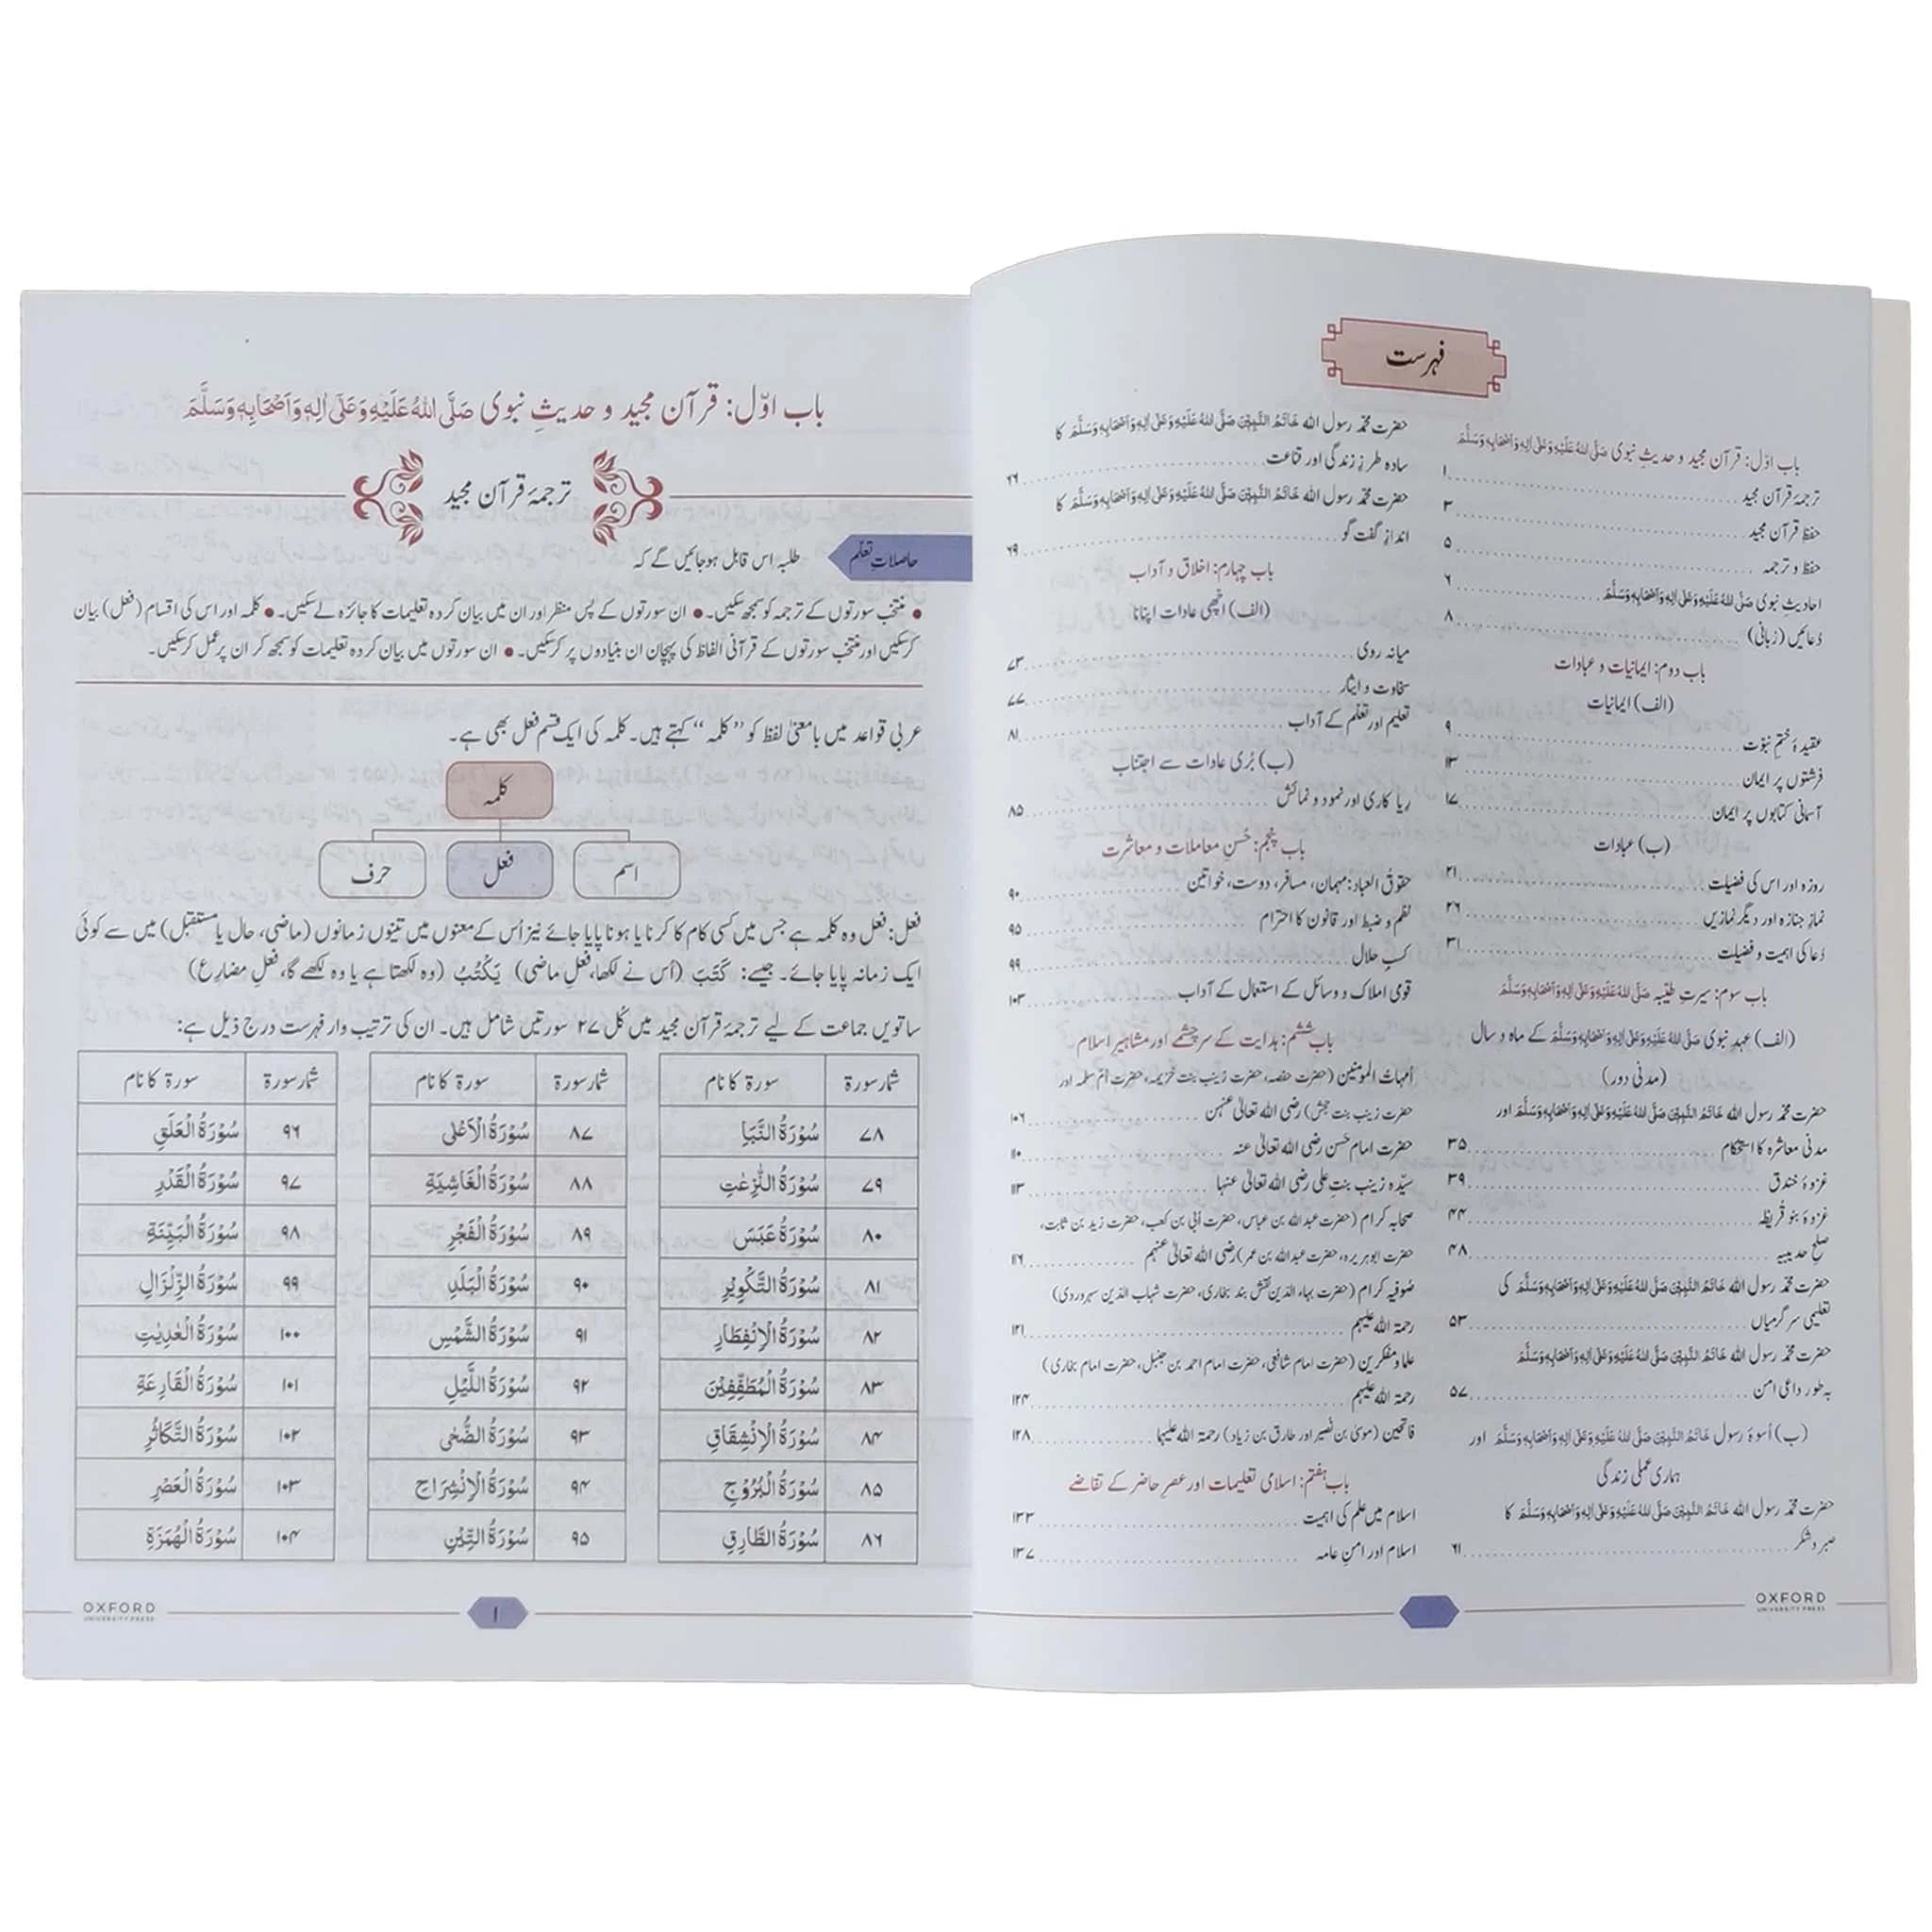 فہرست
باب اوّل: قرآن مجید و حدیثِ نبوی صَلَّى اللهُ عَلَيْهِ وَعَلٰى اٰلِهٖ وَاَصْحَابِهٖ وَسَلَّمَ
ترجمۂ قرآن مجید ۱
حفظِ قرآن مجید ۳
حفظ و ترجمہ ۵
احادیثِ نبوی صَلَّى اللهُ عَلَيْهِ وَعَلٰى اٰلِهٖ وَاَصْحَابِهٖ وَسَلَّمَ ۶
دُعائیں (زبانی) ۸
باب دوم: ایمانیات و عبادات
(الف) ایمانیات
عقیدۂ ختمِ نبوّت ۹
فرشتوں پر ایمان ۱۳
آسمانی کتابوں پر ایمان ۱۷
(ب) عبادات
روزہ اور اس کی فضیلت ۲۱
نمازِ جنازہ اور دیگر نمازیں ۲۶
دُعا کی اہمیت و فضیلت ۳۱
باب سوم: سیرتِ طیّبہ صَلَّى اللهُ عَلَيْهِ وَعَلٰى اٰلِهٖ وَاَصْحَابِهٖ وَسَلَّمَ
(الف) عہدِ نبوی صَلَّى اللهُ عَلَيْهِ وَعَلٰى اٰلِهٖ وَاَصْحَابِهٖ وَسَلَّمَ کے ماہ و سال
(مدنی دور)
حضرت محمّد رسول اللہ خَاتَمُ النَّبِيّٖنَ صَلَّى اللهُ عَلَيْهِ وَعَلٰى اٰلِهٖ وَاَصْحَابِهٖ وَسَلَّمَ اور
مدنی معاشرہ کا استحکام ۳۵
غزوۂ خندق ۳۹
غزوۂ بنو قُریظہ ۴۴
صلحِ حدیبیہ ۴۸
حضرت محمّد رسول اللہ خَاتَمُ النَّبِيّٖنَ صَلَّى اللهُ عَلَيْهِ وَعَلٰى اٰلِهٖ وَاَصْحَابِهٖ وَسَلَّمَ کی
تعلیمی سرگرمیاں ۵۳
حضرت محمّد رسول اللہ خَاتَمُ النَّبِيّٖنَ صَلَّى اللهُ عَلَيْهِ وَعَلٰى اٰلِهٖ وَاَصْحَابِهٖ وَسَلَّمَ
بہ طور داعیِ امن ۵۷
(ب) اُسوۂ رسول خَاتَمُ النَّبِيّٖنَ صَلَّى اللهُ عَلَيْهِ وَعَلٰى اٰلِهٖ وَاَصْحَابِهٖ وَسَلَّمَ اور
ہماری عملی زندگی
حضرت محمّد رسول اللہ خَاتَمُ النَّبِيّٖنَ صَلَّى اللهُ عَلَيْهِ وَعَلٰى اٰلِهٖ وَاَصْحَابِهٖ وَسَلَّمَ کا
صبر و شکر ۶۱
حضرت محمّد رسول اللہ خَاتَمُ النَّبِيّٖنَ صَلَّى اللهُ عَلَيْهِ وَعَلٰى اٰلِهٖ وَاَصْحَابِهٖ وَسَلَّمَ کا
سادہ طرزِ زندگی اور قناعت ۶۶
حضرت محمّد رسول اللہ خَاتَمُ النَّبِيّٖنَ صَلَّى اللهُ عَلَيْهِ وَعَلٰى اٰلِهٖ وَاَصْحَابِهٖ وَسَلَّمَ کا
اندازِ گفت گو ۶۹
باب چہارم: اخلاق و آداب
(الف) اچھی عادات اپنانا
میانہ روی ۷۳
سخاوت و ایثار ۷۷
تعلیم اور تعلّم کے آداب ۸۱
(ب) بُری عادات سے اجتناب
ریا کاری اور نمود و نمائش ۸۵
باب پنجم: حُسنِ معاملات و معاشرت
حقوقُ العباد: مہمان، مسافر، دوست، خواتین ۹۰
نظم و ضبط اور قانون کا احترام ۹۵
کسبِ حلال ۹۹
قومی املاک و وسائل کے استعمال کے آداب ۱۰۳
باب ششم: ہدایت کے سرچشمے اور مشاہیرِ اسلام
اُمہات المومنین (حضرت حفصہ، حضرت زینب بنت خزیمہ، حضرت اُمّ سلمہ اور
حضرت زینب بنت جحش) رضی اللہ تعالیٰ عنہن ۱۰۶
حضرت امام حَسن رضی اللہ تعالیٰ عنہ ۱۱۰
سیّدہ زینب بنتِ علی رضی اللہ تعالیٰ عنہا ۱۱۳
صحابہ کرام (حضرت عبداللہ بن عباس، حضرت اُبی بن کعب، حضرت زید بن ثابت،
حضرت ابوہریرہ، حضرت عبداللہ بن عمر) رضی اللہ تعالیٰ عنہم ۱۱۶
صُوفیہ کرام (حضرت بہاء الدّین نقش بند بخاری، حضرت شہاب الدّین سہروردی)
رحمۃ اللہ علیہم ۱۲۱
علما و مفکرین (حضرت امام شافعی، حضرت امام احمد بن حنبل، حضرت امام بخاری)
رحمۃ اللہ علیہم ۱۲۴
فاتحین (موسیٰ بن نُصیر اور طارق بن زیاد) رحمۃ اللہ علیہما ۱۲۸
باب ہفتم: اسلامی تعلیمات اور عصرِ حاضر کے تقاضے
اسلام میں علم کی اہمیت ۱۳۳
اسلام اور امنِ عامہ ۱۳۷
OXFORD
UNIVERSITY PRESS
باب اوّل: قرآن مجید و حدیثِ نبوی صَلَّى اللهُ عَلَيْهِ وَعَلٰى اٰلِهٖ وَاَصْحَابِهٖ وَسَلَّمَ
ترجمۂ قرآن مجید
حاصلاتِ تعلّم
طلبہ اس قابل ہوجائیں گے کہ
• منتخب سورتوں کے ترجمہ کو سمجھ سکیں۔ • ان سورتوں کے پس منظر اور ان میں بیان کردہ تعلیمات کا جائزہ لے سکیں۔ • کلمہ اور اس کی اقسام (فعل) بیان
کرسکیں اور منتخب سورتوں کے قرآنی الفاظ کی پہچان ان بنیادوں پر کرسکیں۔ • ان سورتوں میں بیان کردہ تعلیمات کو سمجھ کر ان پر عمل کرسکیں۔
عربی قواعد میں بامعنیٰ لفظ کو ”کلمہ“ کہتے ہیں۔ کلمہ کی ایک قسم فعل بھی ہے۔
کلمہ
اسم فعل حرف
فعل: فعل وہ کلمہ ہے جس میں کسی کام کا کرنا یا ہونا پایا جائے نیز اُس کے معنوں میں تینوں زمانوں (ماضی، حال یا مستقبل) میں سے کوئی
ایک زمانہ پایا جائے۔ جیسے: كَتَبَ (اُس نے لکھا، فعلِ ماضی) يَكْتُبُ (وہ لکھتا ہے یا وہ لکھے گا، فعلِ مضارع)
ساتویں جماعت کے لیے ترجمۂ قرآن مجید میں کُل ۲۷ سورتیں شامل ہیں۔ ان کی ترتیب وار فہرست درج ذیل ہے:
شمار سورۃ سورۃ کا نام شمار سورۃ سورۃ کا نام شمار سورۃ سورۃ کا نام
۷۸ سُوْرَةُ النَّبَاِ ۸۷ سُوْرَةُ الْاَعْلٰى ۹۶ سُوْرَةُ الْعَلَقِ
۷۹ سُوْرَةُ النّٰزِعٰتِ ۸۸ سُوْرَةُ الْغَاشِيَةِ ۹۷ سُوْرَةُ الْقَدْرِ
۸۰ سُوْرَةُ عَبَسَ ۸۹ سُوْرَةُ الْفَجْرِ ۹۸ سُوْرَةُ الْبَيِّنَةِ
۸۱ سُوْرَةُ التَّكْوِيْرِ ۹۰ سُوْرَةُ الْبَلَدِ ۹۹ سُوْرَةُ الزِّلْزَالِ
۸۲ سُوْرَةُ الْاِنْفِطَارِ ۹۱ سُوْرَةُ الشَّمْسِ ۱۰۰ سُوْرَةُ الْعٰدِيٰتِ
۸۳ سُوْرَةُ الْمُطَفِّفِيْنَ ۹۲ سُوْرَةُ اللَّيْلِ ۱۰۱ سُوْرَةُ الْقَارِعَةِ
۸۴ سُوْرَةُ الْاِنْشِقَاقِ ۹۳ سُوْرَةُ الضُّحٰى ۱۰۲ سُوْرَةُ التَّكَاثُرِ
۸۵ سُوْرَةُ الْبُرُوْجِ ۹۴ سُوْرَةُ الْاِنْشِرَاحِ ۱۰۳ سُوْرَةُ الْعَصْرِ
۸۶ سُوْرَةُ الطَّارِقِ ۹۵ سُوْرَةُ التِّيْنِ ۱۰۴ سُوْرَةُ الْهُمَزَةِ
OXFORD
UNIVERSITY PRESS
۱